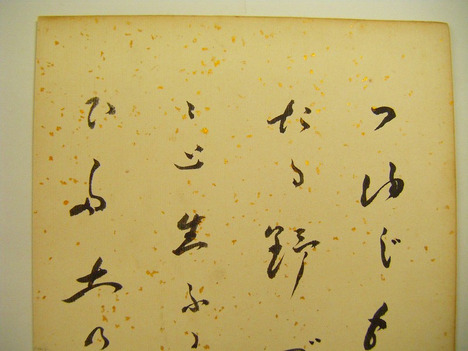 つゆじも
たる野
こと生ふ
ひた土の